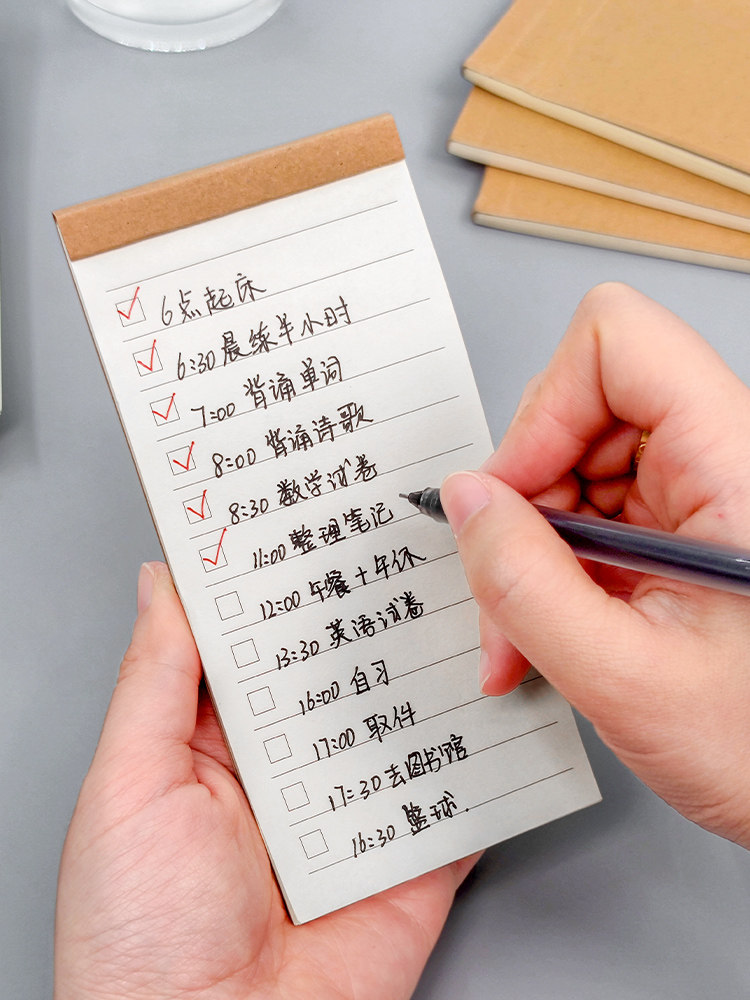 6点起床
6:30 晨练半小时
7:00 背诵单词
8:00 背诵诗歌
8:30 数学试卷
11:00 整理笔记
12:00 午餐+午休
13:30 英语试卷
16:00 自习
17:00 取件
17:30 去图书馆
16:30 篮球.